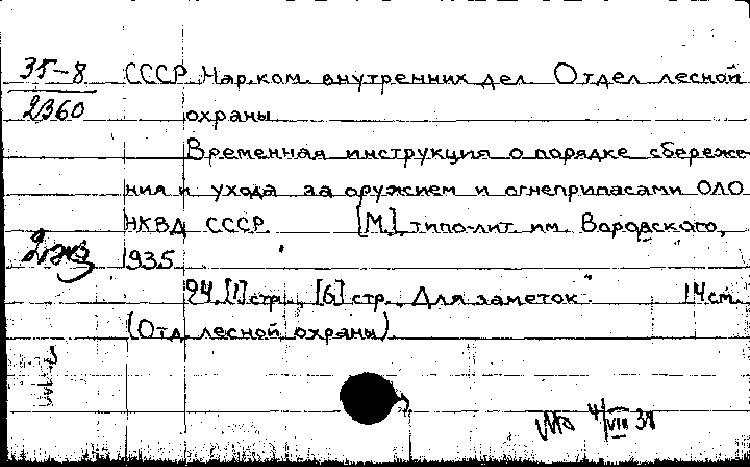 35-8
2360
СССР. Нар. ком. внутренних дел. Отдел лесной
охраны
Временная инструкция о порядке сбереже-
ния и ухода за оружием и огнеприпасами ОЛО
НКВД СССР. [М.], типо-лит. им. Воровского,
1935.
2 экз
24, [1] стр., [6] стр. „Для заметок". 14 см.
(Отд. лесной охраны).
4/VII 38